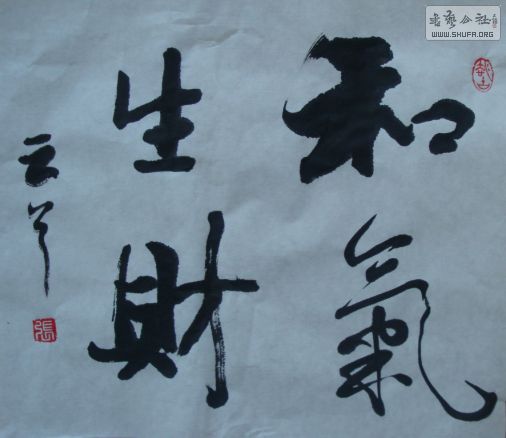 和氣
生財
云
張
書藝公社
WWW.SHUFA.ORG